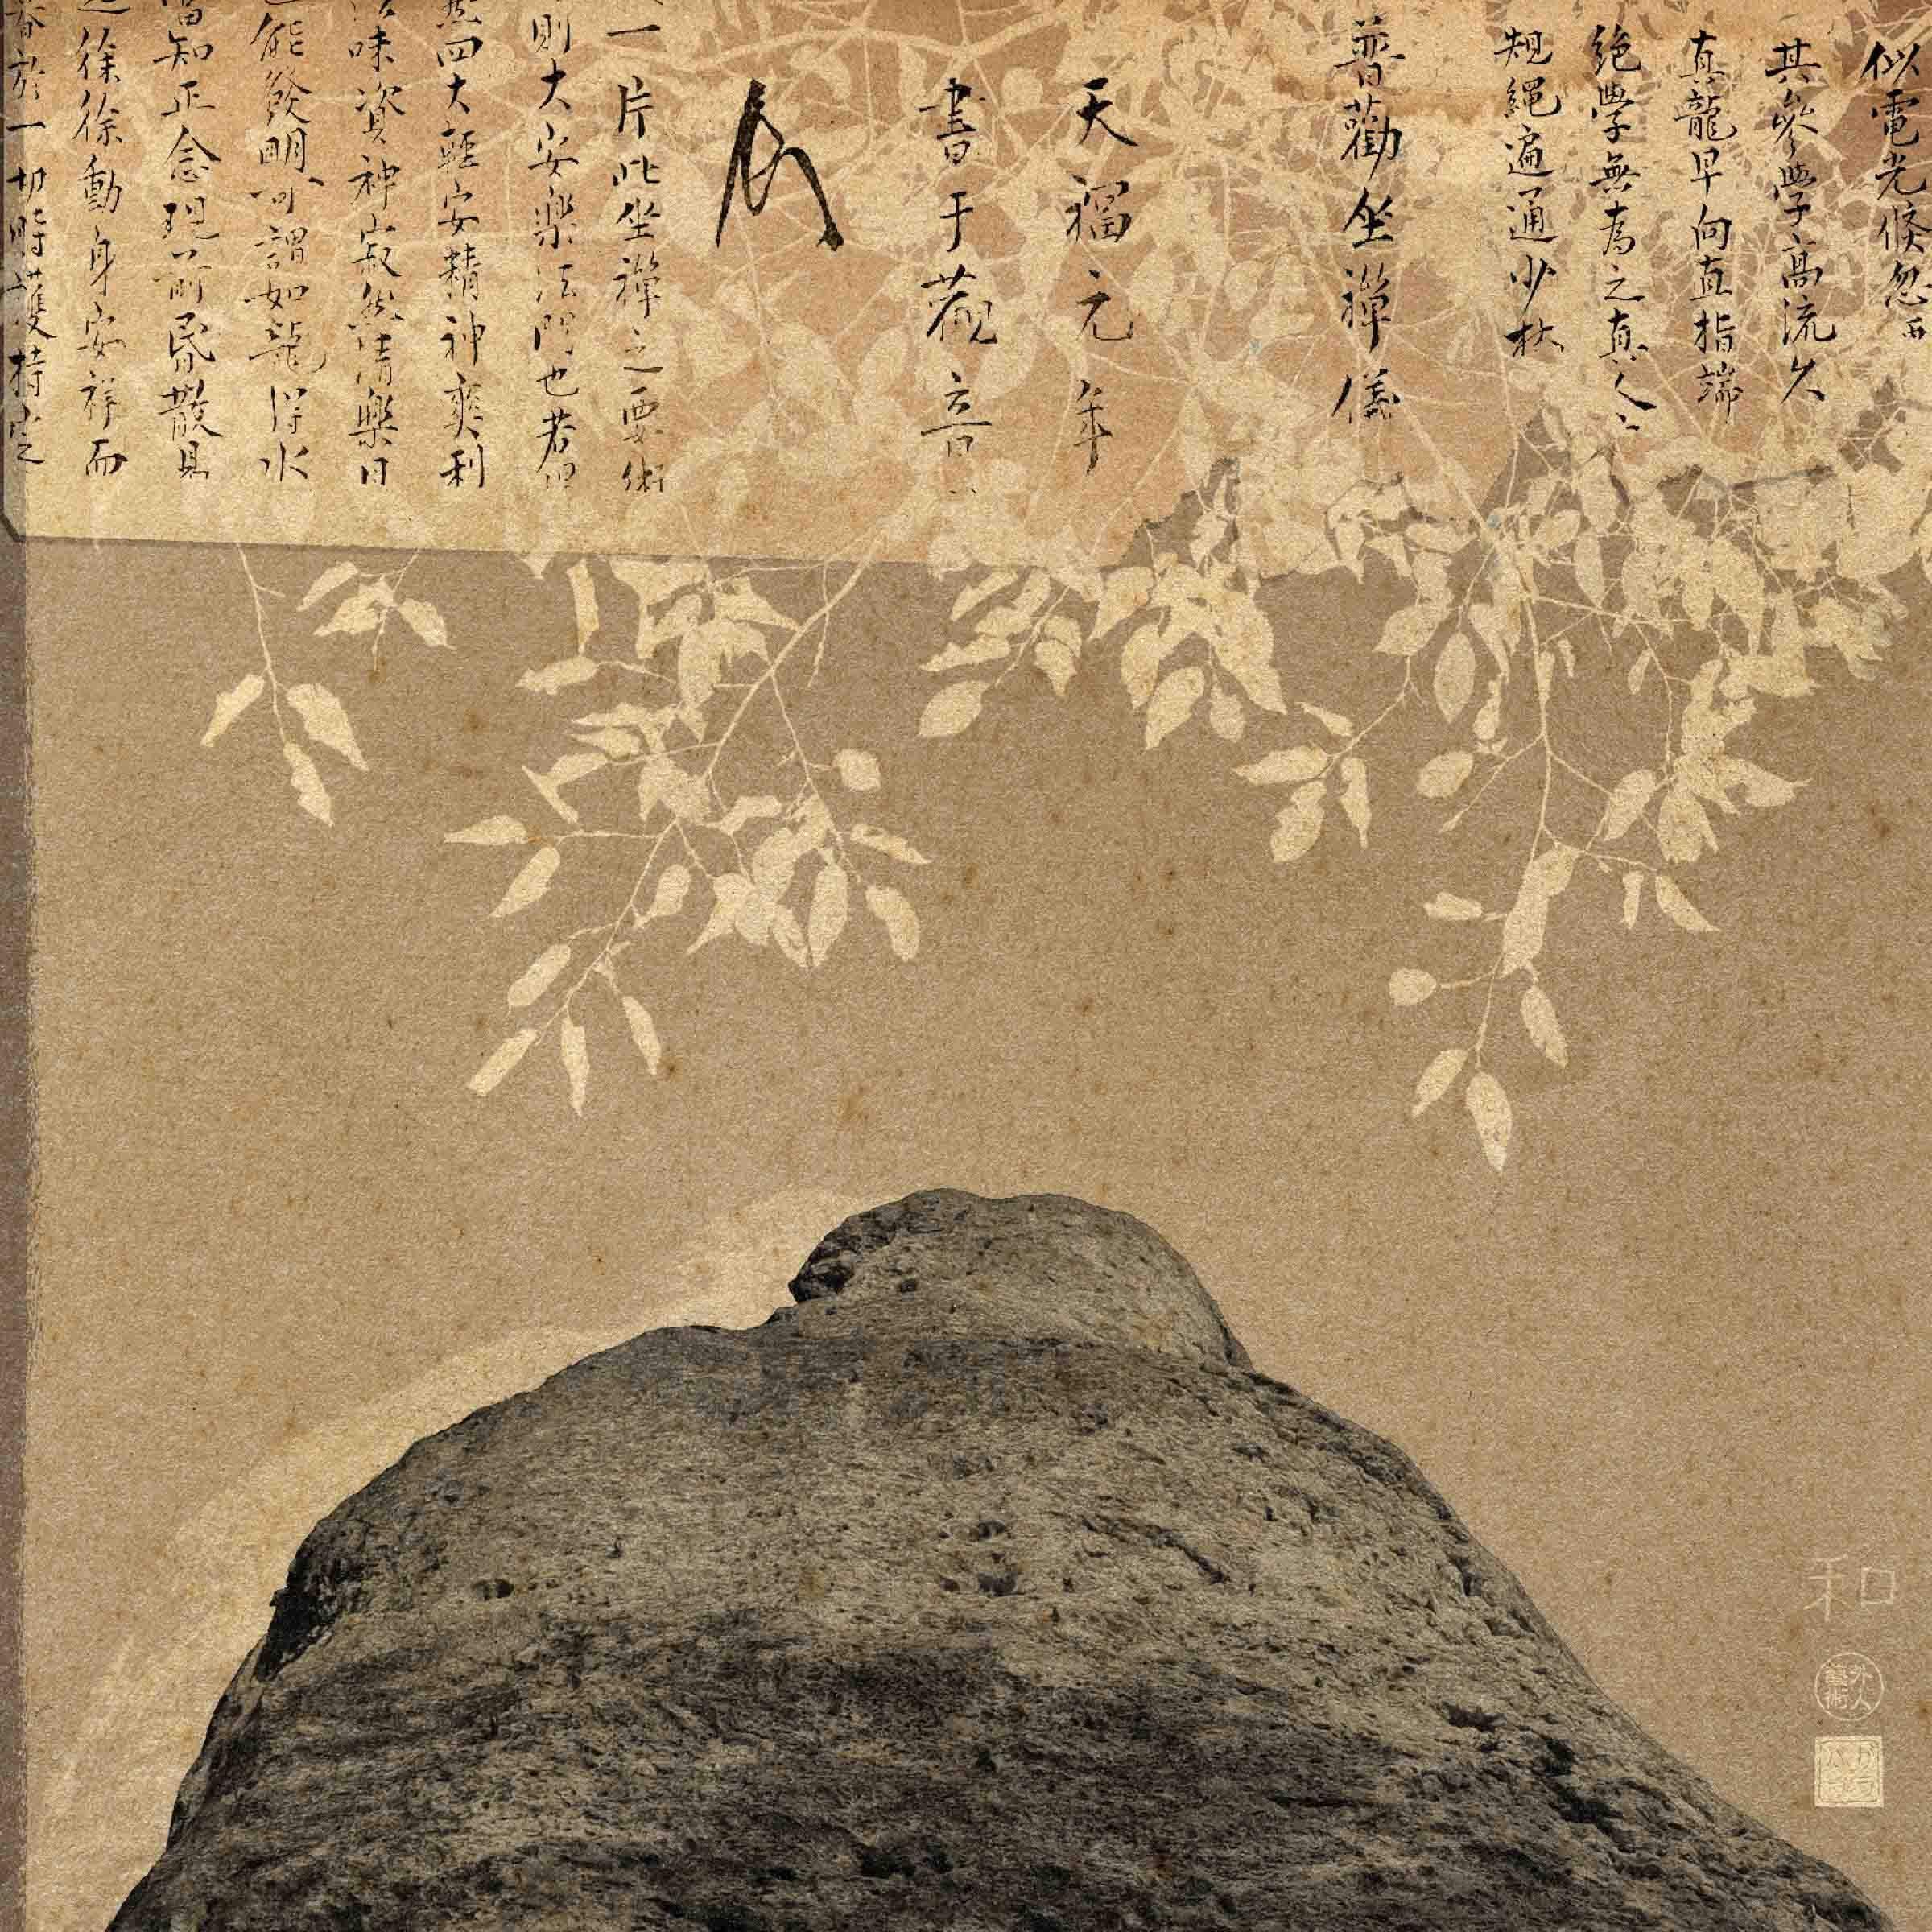 似電光倐忽
其參學高流久
真龍早向直指端
絶學無為之真人
規繩遍通少林
普勸坐禪儀
天福元年
書于觀音
一片此坐禪之要術
則大安樂法門也若
四大輕安精神爽利
味資神寂然清樂日
能發明可謂如龍得水
當知正念現前昏散
徐徐動身安祥而
於一切時護持定
和
外人
藝術